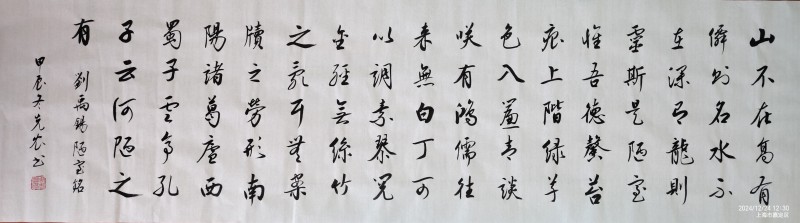 山不在高有
僊則名水不
在深有龍則
靈斯是陋室
惟吾德馨苔
痕上階緑草
色入簾青談
咲有鴻儒往
来無白丁可
以調素琴閲
金經無絲竹
之亂耳無案
牘之勞形南
陽諸葛廬西
蜀子雲亭孔
子云何陋之
有
劉禹錫陋室銘
甲辰冬克农书
2024/12/24 12:30